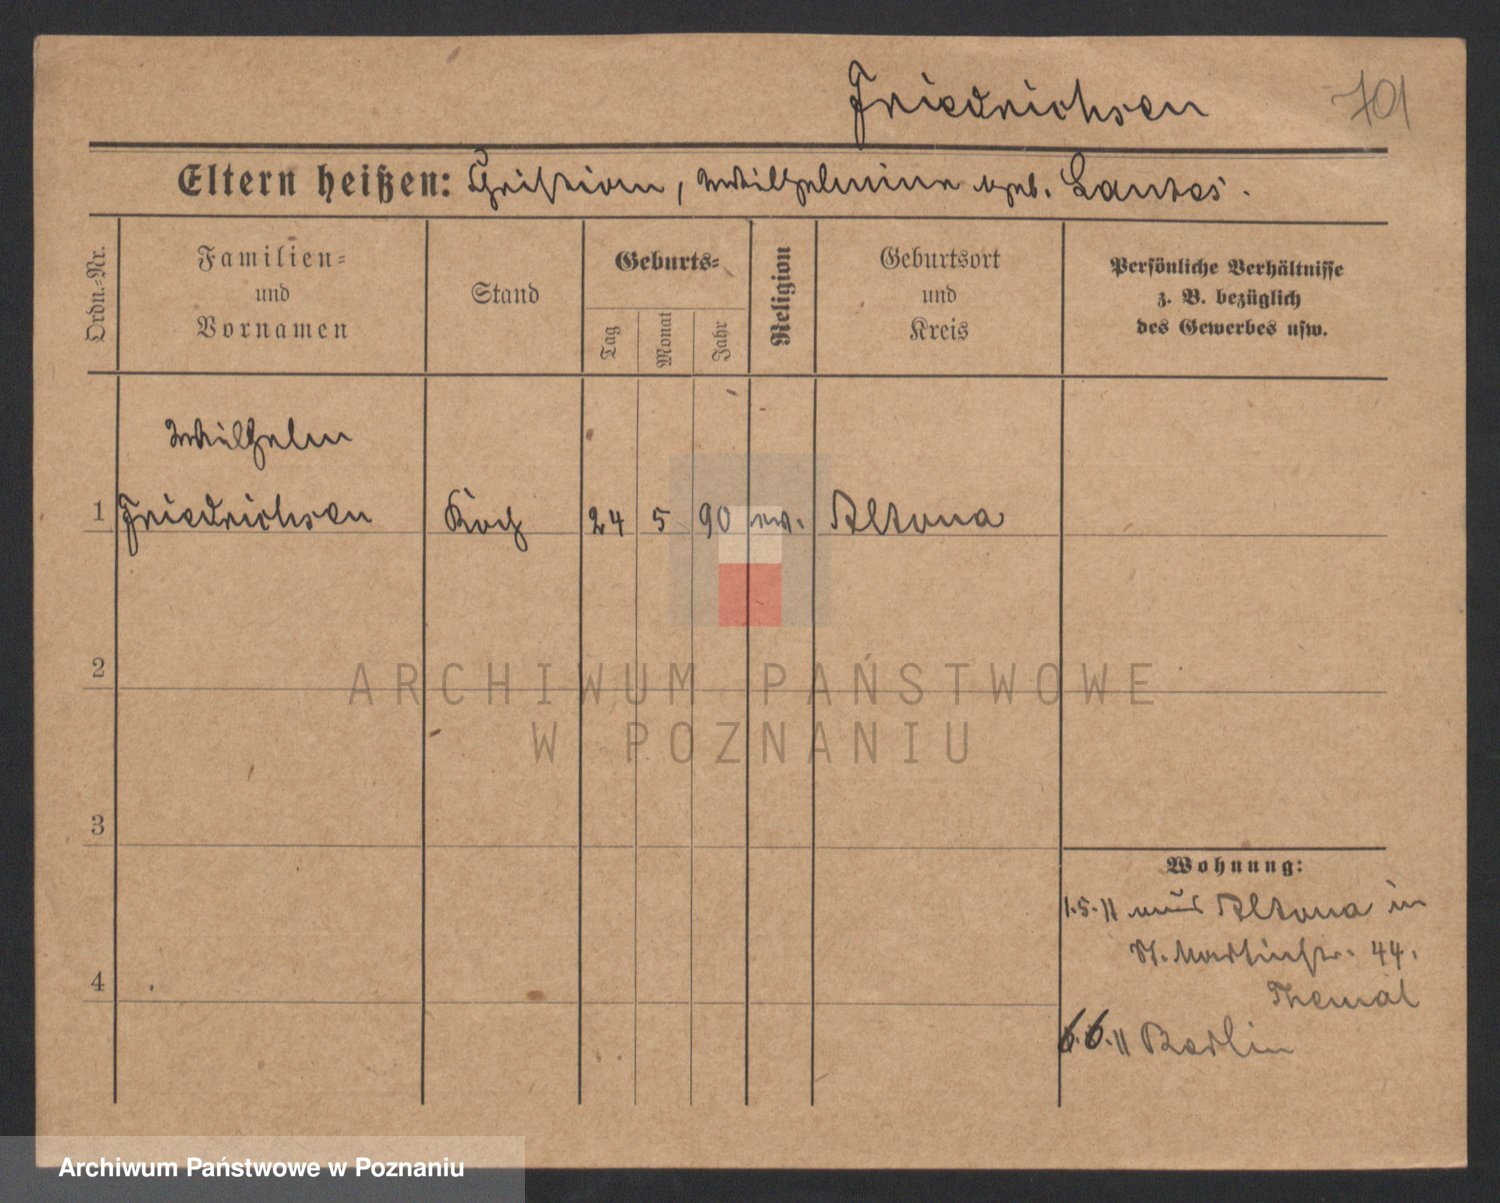 Friedrichsen 701
Eltern heißen: Christian, Wilhelmine geb.
Ordn.-Nr.
Familien-
und
Vornamen
Stand
Geburts-
Tag
Monat
Jahr
Religion
Geburtsort
und
Kreis
Persönliche Verhältnisse
z. B. bezüglich
des Gewerbes usw.
Wilhelm
1 Friedrichsen Koch 24 5 90 ev. Altona
2
ARCHIWUM PAŃSTWOWE
W POZNANIU
3
Wohnung:
1.5.11 aus Altona in
St. Martinstr. 44.
4
6.6.11 Berlin
Archiwum Państwowe w Poznaniu